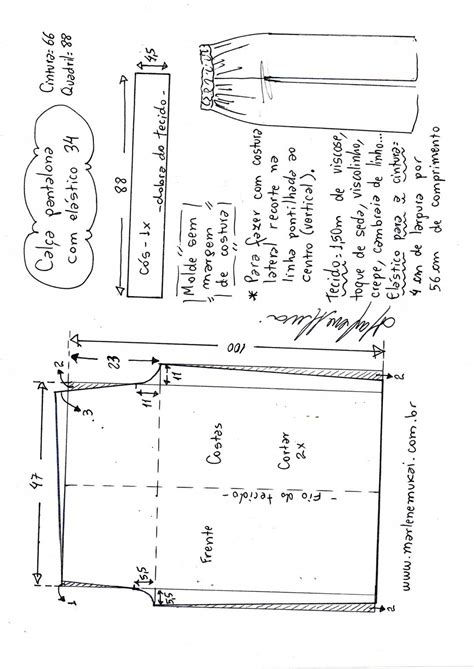 Calça pantalona
com elástico 34
Cintura: 66
Quadril: 88
88
4,5
cós - 1x
- dobra do tecido -
Molde sem
margem
de costura
* Para fazer com costura
lateral recorte na
linha pontilhada ao
centro (vertical).
Tecido: 1,50m de viscose,
toque de seda, viscolinho,
crepe, cambraia de linho...
Elástico para a cintura:
4 cm de largura por
56 cm de comprimento
47
2
3
23
100
11
11
Costas
Cortar
2x
- Fio do tecido -
Frente
1
5,5
5,5
2
2
www.marlenemukai.com.br